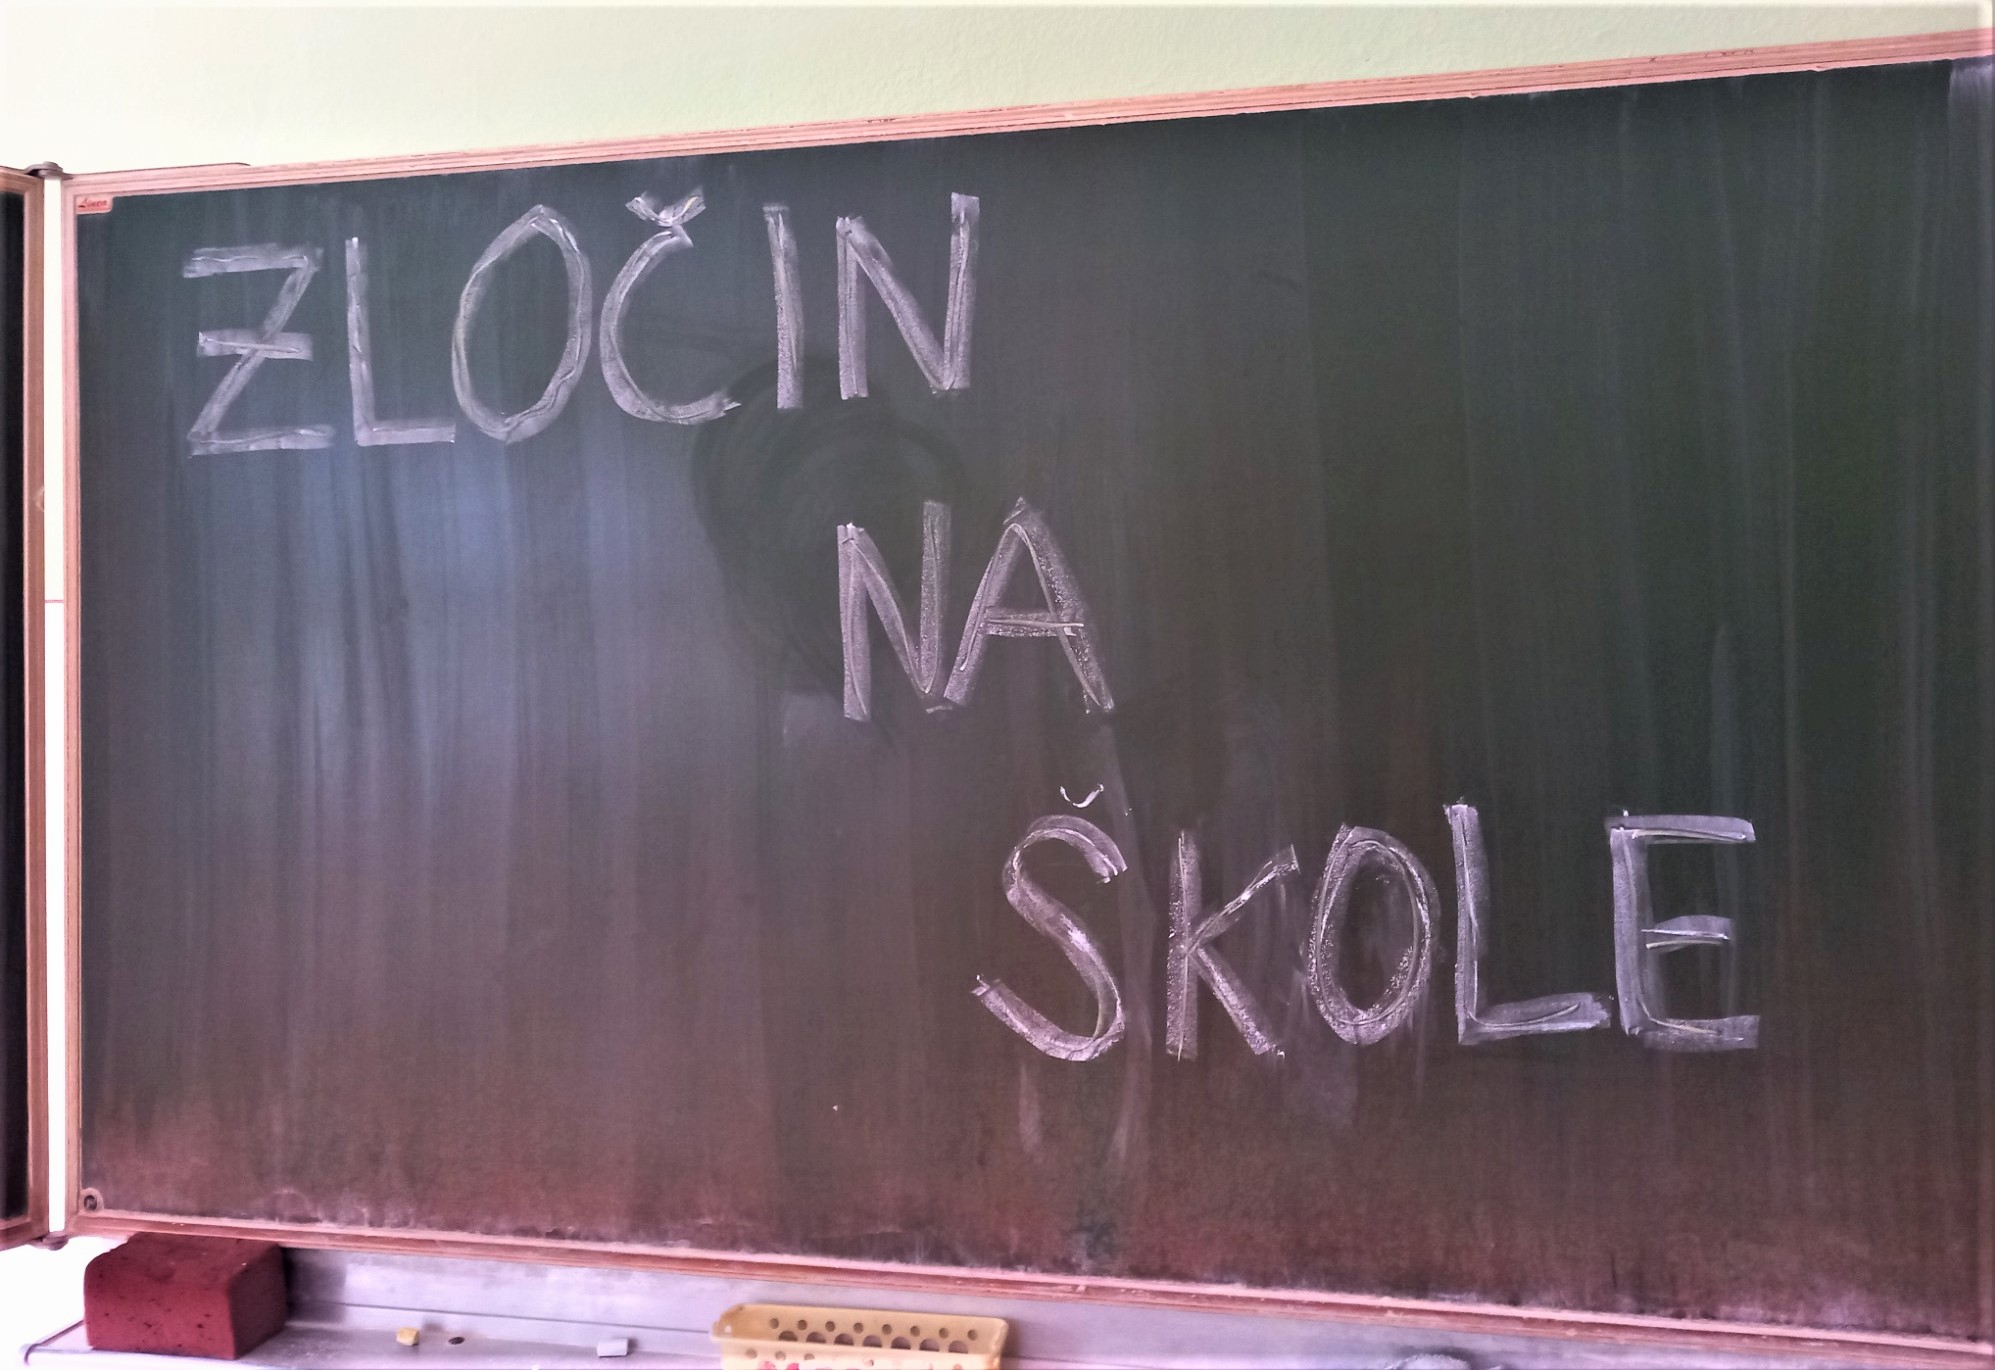 ZLOČIN
NA
ŠKOLE